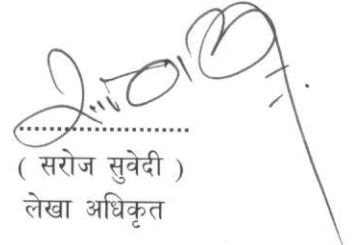 ( सरोज सुवेदी )
लेखा अधिकृत